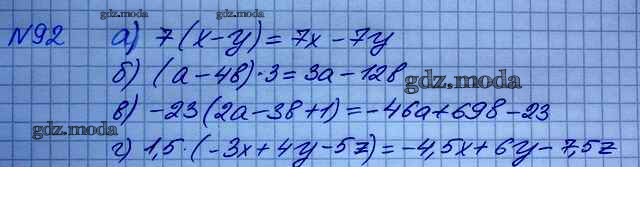 gdz.moda gdz.moda
N92 а) 7(x-y)=7x-7y
б) (a-4в)·3=3a-12в
gdz.moda
в) -23(2a-3в+1)=-46a+69в-23
gdz.moda
г) 1,5·(-3x+4y-5z)=-4,5x+6y-7,5z